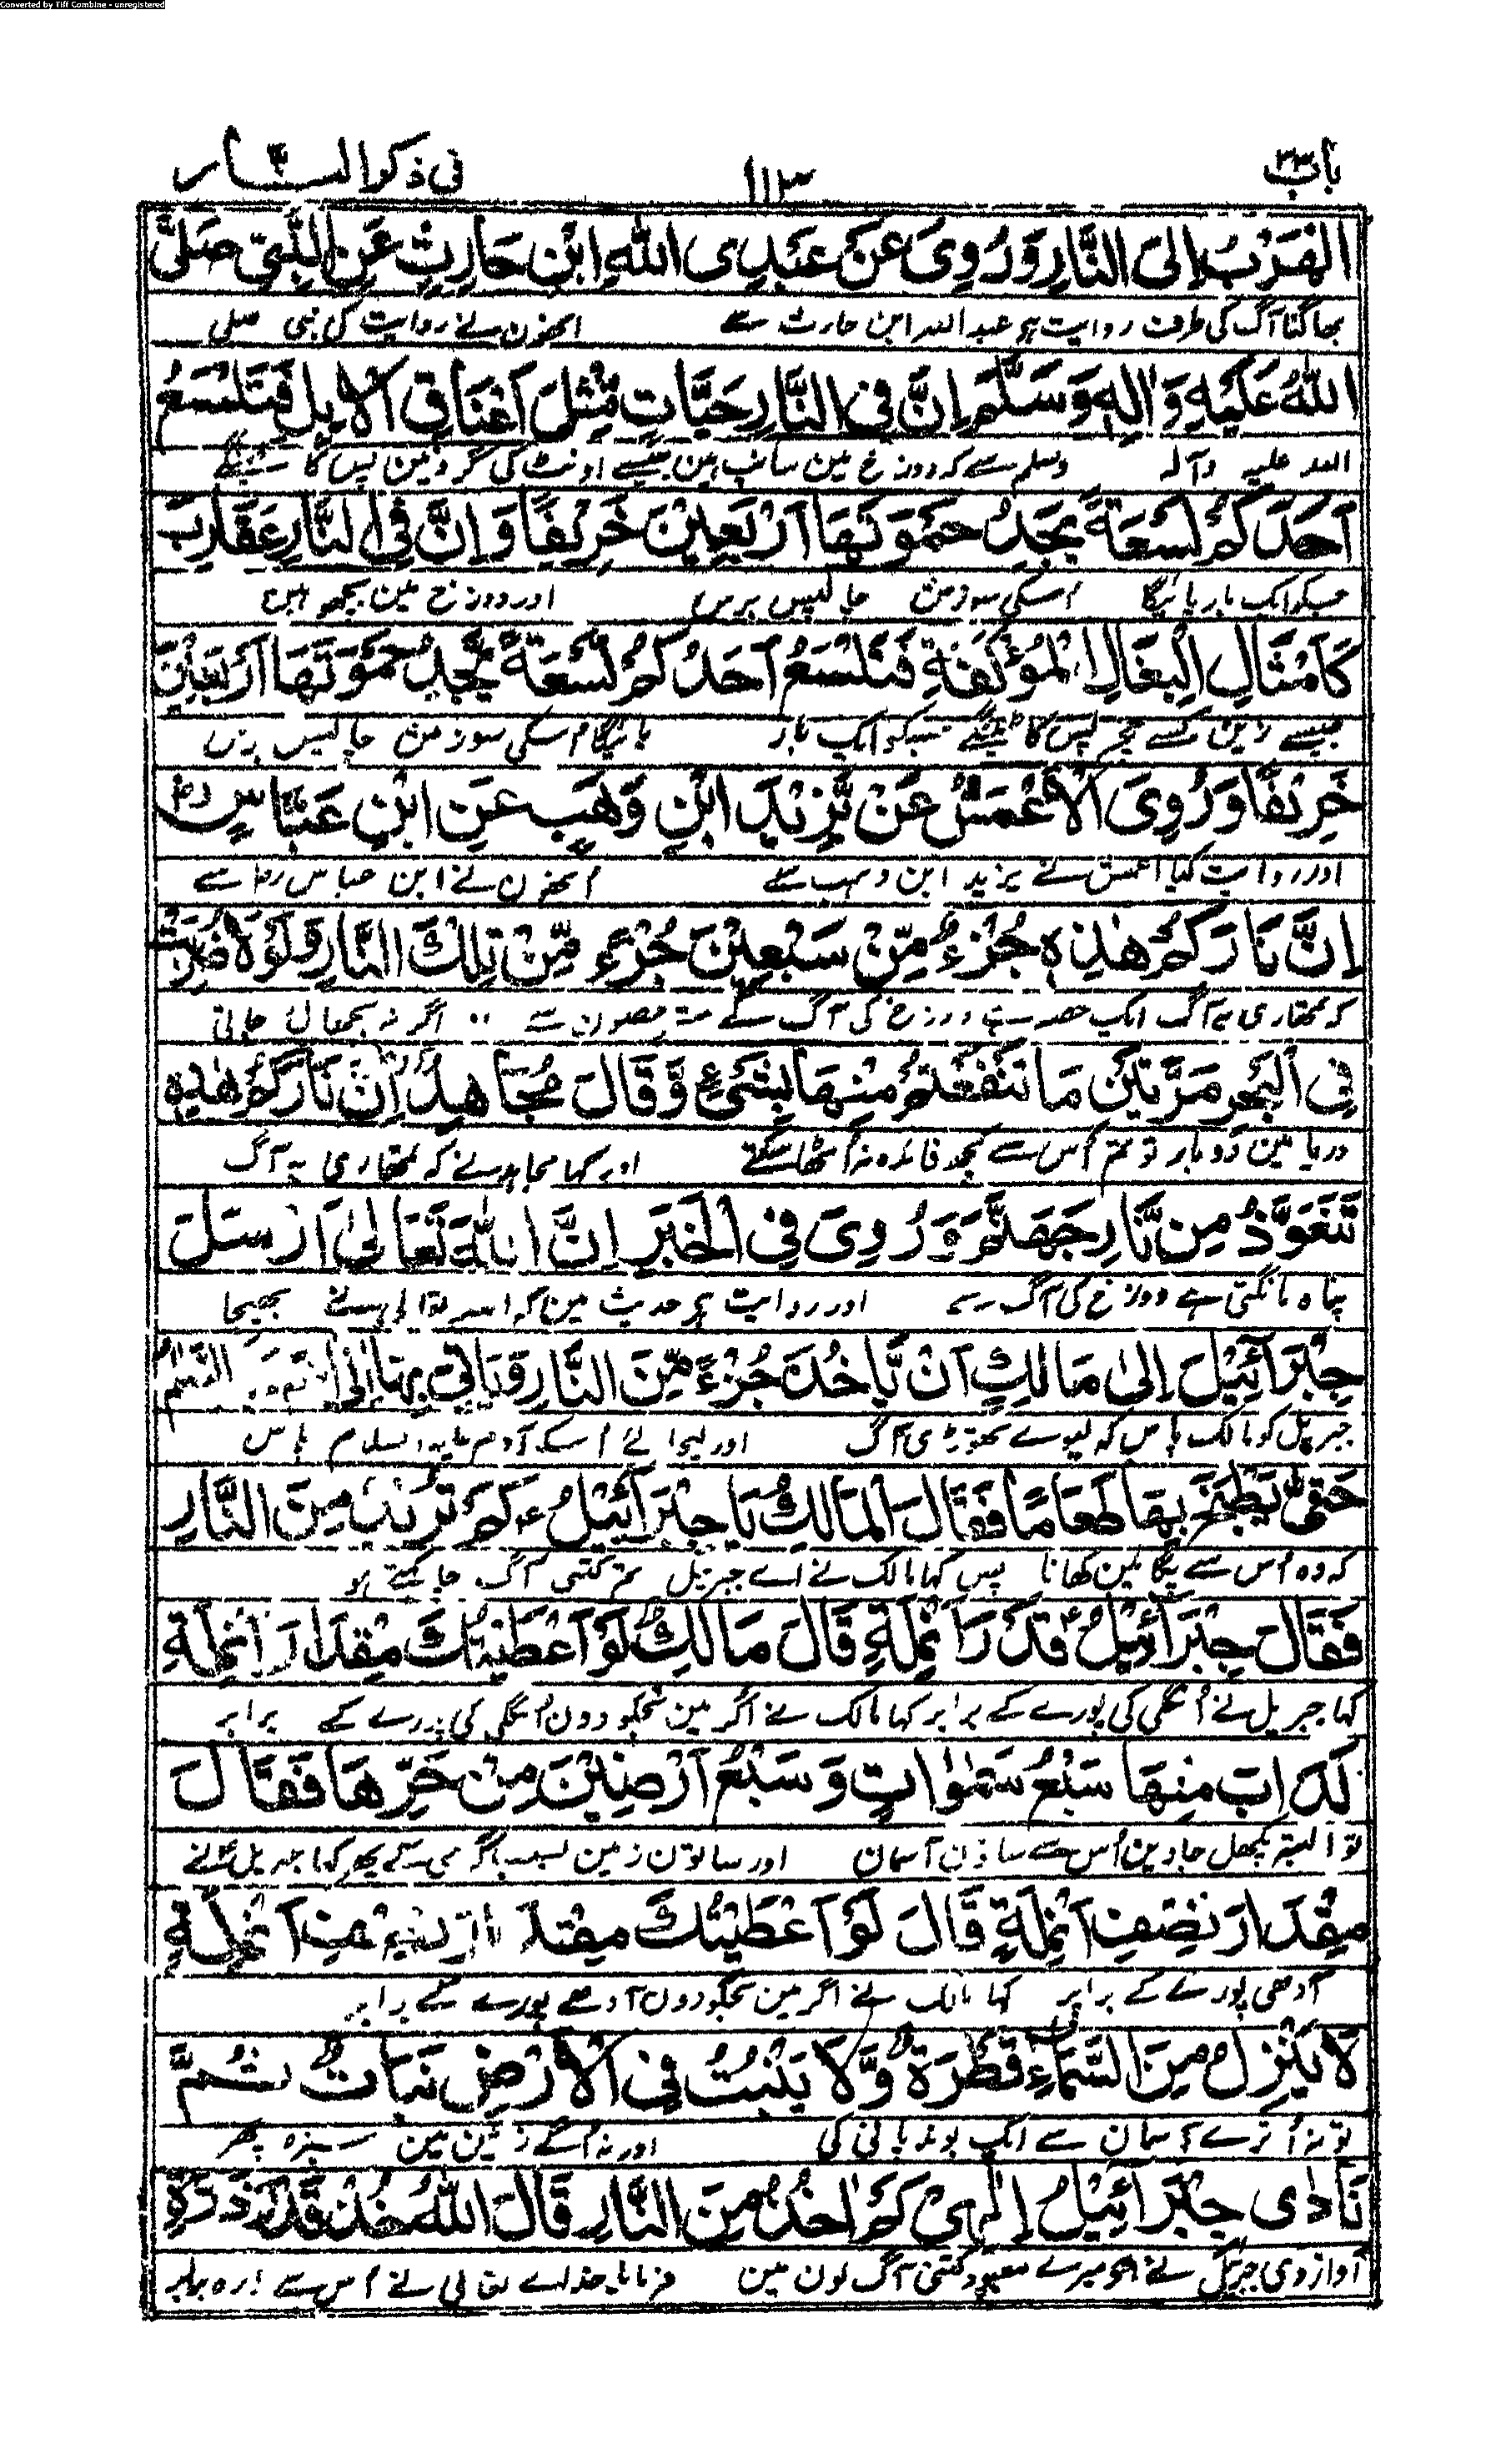 Converted by Tiff Combine - unregistered
باب ٣٣ ١١٣ فی ذکر النار
الْهَرَبُ اِلَى النَّارِ وَرُوِیَ عَنْ عَبْدِی اللهِ ابْنِ حَارِثٍ عَنِ النَّبِیِّ صَلَّی
بھاگنا آگ کی طرف روایت ہے عبد اللہ ابن حارث سے انھون نے روایت کی نبی صلی
اللهُ عَلَیْهِ وَاٰلِهٖ وَسَلَّمَ اِنَّ فِی النَّارِ حَیَّاتٍ مِّثْلَ اَعْنَاقِ الْاِبِلِ فَتَلْسَعُ
اللہ علیہ وآلہ وسلم سے کہ دوزخ مین سانپ ہین جیسے اونٹ کی گردنین پس کاٹینگے
اَحَدَکُمْ لَسْعَةً یَجِدُ حَمْوَتَهَا اَرْبَعِیْنَ خَرِیْفًا وَاِنَّ فِی النَّارِ عَقَارِبَ
جسکو ایک بار پائیگا اسکی سوزش چالیس برس اور دوزخ مین بچھو ہین
کَاَمْثَالِ الْبِغَالِ الْمُؤْکَفَةِ فَتَلْسَعُ اَحَدُکُمْ لَسْعَةً یَجِدُ حَمْوَتَهَا اَرْبَعِیْنَ
جیسے زین کسے خچر پس کاٹینگے جسکو ایک بار پائیگا اسکی سوزش چالیس برس
خَرِیْفًا وَرُوِیَ الْاَعْمَشُ عَنْ یَّزِیْدَ ابْنِ وَهَبٍ عَنِ ابْنِ عَبَّاسٍ رض
اور روایت کیا اعمش نے یزید ابن وہب سے انھون نے ابن عباس رض سے
اِنَّ نَارَکُمْ هٰذِهٖ جُزْءٌ مِّنْ سَبْعِیْنَ جُزْءٍ مِّنْ تِلْکَ النَّارِ وَلَوْلَا
کہ تمھاری یہ آگ ایک حصہ ہے دوزخ کی آگ کے ستر حصون سے اگر نہ بجھائی جاتی
فِی الْبَحْرِ مَرَّتَیْنِ مَا تَنْفَعْتُمْ مِنْهَا بِشَیْءٍ وَّقَالَ مُجَاهِدٌ اِنَّ نَارَکُمْ هٰذِهٖ
دریا مین دو بار تو تم اُس سے کچھ فائدہ نہ اُٹھا سکتے اور کہا مجاہد نے کہ تمھاری یہ آگ
تَتَعَوَّذُ مِنْ نَّارِ جَهَنَّمَ وَرُوِیَ فِی الْخَبَرِ اِنَّ اللهَ تَعَالٰی اَرْسَلَ
پناہ مانگتی ہے دوزخ کی آگ سے اور روایت ہے حدیث مین کہ اللہ تعالی نے بھیجا
جِبْرَآئِیْلَ اِلٰی مَالِکٍ اَنْ یَّاخُذَ جُزْءً مِّنَ النَّارِ فَیَاْتِیْ بِهَا اِلٰی
جبریل کو مالک پاس کہ لیوے تھوڑی آگ اور لیجائے اسکو آدم علیہ السلام پاس
حَتّٰی یَطْبَخَ بِهَا طَعَامًا فَقَالَ الْمَالِکُ یَا جِبْرَآئِیْلُ ء کَمْ تُرِیْدُ مِنَ النَّارِ
کہ وہ اُس سے پکا لین کھانا پس کہا مالک نے اے جبریل تم کتنی آگ چاہتے ہو
فَقَالَ جِبْرَآئِیْلُ ء قَدْرَ اَنْمِلَةٍ قَالَ مَالِکٌ لَوْ اَعْطَیْتُکَ مِقْدَارَ اَنْمِلَةٍ
کہا جبریل نے اُنگلی کی پورے کے برابر کہا مالک نے اگر مین تجکو دون اُنگلی کی پورے کے برابر
لَذَابَ مِنْهَا سَبْعُ سَمٰوَاتٍ وَسَبْعُ اَرْضِیْنَ مِنْ حَرِّهَا فَقَالَ
تو البتہ پگھل جاوین اُس سے ساتون آسمان اور ساتون زمین بسبب گرمی کے پھر کہا جبریل نے
مِقْدَارَ نِصْفِ اَنْمِلَةٍ قَالَ لَوْ اَعْطَیْتُکَ مِقْدَارَ نِصْفِ اَنْمِلَةٍ
آدھی پورے کے برابر کہا مالک نے اگر مین تجکو دون آدھے پورے کے برابر
لَا یَنْزِلُ مِنَ السَّمَاءِ قَطْرَةٌ وَّلَا یَنْبُتُ فِی الْاَرْضِ نَبَاتٌ ثُمَّ
تو نہ اُترے آسمان سے ایک بوند پانی کی اور نہ اُگے زمین مین سبزہ پھر
نَادٰی جِبْرَآئِیْلُ اِلٰهِیْ کَمْ اٰخُذُ مِنَ النَّارِ قَالَ اللهُ خُذْ قَدْرَ ذَرَّةٍ
آواز دی جبریل نے اے میرے معبود کتنی آگ لون مین فرمایا خداے تعالی نے اُس سے ذرہ برابر